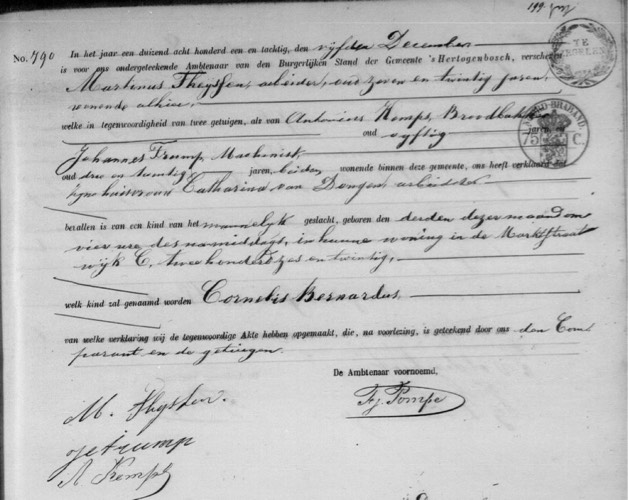 No. 790
In het jaar een duizend acht honderd een en tachtig, den vijfden December
is voor ons ondergeteekende Ambtenaar van den Burgerlijken Stand der Gemeente 's Hertogenbosch, verschenen
Martinus Thyssen, arbeider, oud zeven en twintig jaren,
wonende alhier,
welke in tegenwoordigheid van twee getuigen, als van Antonius Kemps, Broodbakker
oud vyftig jaren en
Johannes Trump, Machinist
oud drie en twintig jaren, beiden wonende binnen deze gemeente, ons heeft verklaard dat
zyne huisvrouw Catharina van Dongen, arbeidster
bevallen is van een kind van het mannelyk geslacht, geboren den derden dezer maand om
vier ure des namiddags, in hunne woning in de Marktstraat
wyk C, twee honderd zes en twintig,
welk kind zal genaamd worden Cornelis Bernardus
van welke verklaring wij de tegenwoordige Akte hebben opgemaakt, die, na voorlezing, is geteekend door ons den Com
parant en de getuigen.
De Ambtenaar voornoemd,
M. Thyssen.
Trump
A Kemps